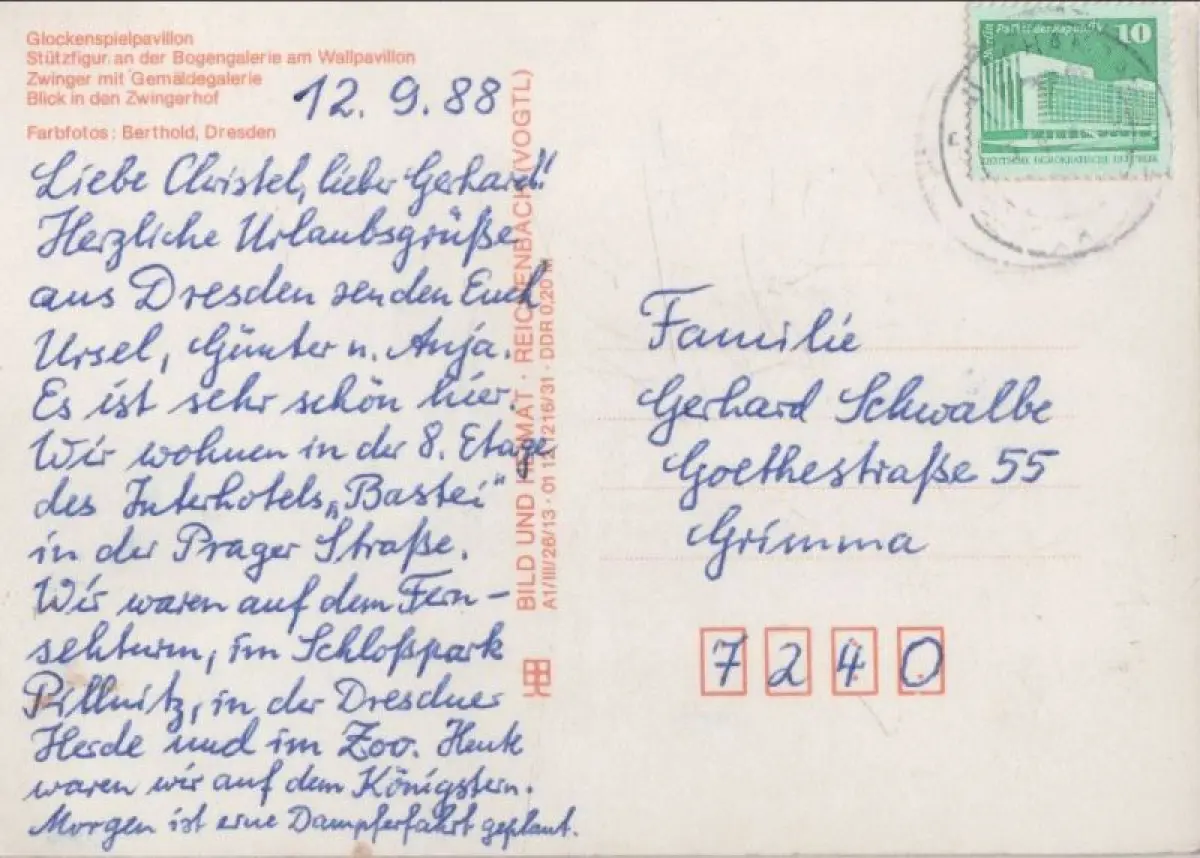 Glockenspielpavillon
Stützfigur an der Bogengalerie am Wallpavillon
Zwinger mit Gemäldegalerie
Blick in den Zwingerhof
Farbfotos: Berthold, Dresden
12. 9. 88
Liebe Christel, lieber Gerhard!
Herzliche Urlaubsgrüße
aus Dresden senden Euch
Ursel, Günter u. Anja.
Es ist sehr schön hier.
Wir wohnen in der 8. Etage
des Interhotels „Bastei“
in der Prager Straße.
Wir waren auf dem Fern-
sehturm, im Schloßpark
Pillnitz, in der Dresdner
Heide und im Zoo. Heute
waren wir auf dem Königstein.
Morgen ist eine Dampferfahrt geplant.
BILD UND HEIMAT · REICHENBACH (VOGTL)
A1/III/26/13 · 01 12 1216/31 · DDR 0,20 M
Berlin Palast der Republik
10
DEUTSCHE DEMOKRATISCHE REPUBLIK
Familie
Gerhard Schwalbe
Goethestraße 55
Grimma
7240